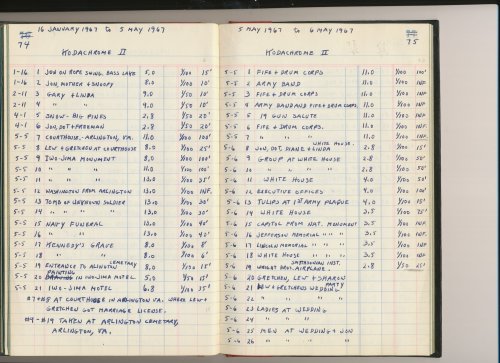 74
16 JANUARY 1967 TO 5 MAY 1967
KODACHROME II
1-16 1 JON ON ROPE SWING, BASS LAKE 5.0 1/100 15'
1-16 2 JON, MOTHER + SNOOPY 8.0 1/100 10'
2-11 3 GARY + LINDA 9.0 1/50 10'
2-11 4 " " 9.0 1/50 10'
4-1 5 SNOW - BIG PINES 2.8 1/50 20'
4-1 6 JON, DOT + FREEMAN 2.8 1/50 20'
5-5 7 COURTHOUSE - ARLINGTON, VA. 11.0 1/100 100'
5-5 8 LEW + GRETCHEN AT COURTHOUSE 8.0 1/100 25'
5-5 9 IWO-JIMA MONUMENT 8.0 1/100 100'
5-5 10 " " " 11.0 1/100 100'
5-5 11 " " " 13.0 1/100 35'
5-5 12 WASHINGTON FROM ARLINGTON 13.0 1/100 INF.
5-5 13 TOMB OF UNKNOWN SOLDIER 13.0 1/100 30'
5-5 14 " " " " 13.0 1/100 30'
5-5 15 NAVY FUNERAL 13.0 1/100 40'
5-5 16 " " 13.0 1/100 40'
5-5 17 KENNEDY'S GRAVE 8.0 1/100 8'
5-5 18 " " 8.0 1/100 6'
5-5 19 ENTRANCE TO ARLINGTON CEMETARY 8.0 1/100 15'
5-5 20 PAINTING IN IWO-JIMA MOTEL 5.0 1/50 15'
5-5 21 IWO-JIMA MOTEL 6.8 1/100 35'
#7 + #8 AT COURTHOUSE IN ARLINGTON VA. WHERE LEW +
GRETCHEN GOT MARRIAGE LICENSE.
#9 - #19 TAKEN AT ARLINGTON CEMETARY,
ARLINGTON, VA.
5 MAY 1967 TO 6 MAY 1967
75
KODACHROME II
5-5 1 FIFE + DRUM CORPS 11.0 1/100 100'
5-5 2 ARMY BAND 11.0 1/100 INF.
5-5 3 FIFE + DRUM CORPS 11.0 1/100 INF.
5-5 4 ARMY BAND AND FIFE + DRUM CORPS 11.0 1/100 INF.
5-5 5 19 GUN SALUTE 11.0 1/100 INF.
5-5 6 FIFE + DRUM CORPS. 11.0 1/100 INF.
5-5 7 " " " " 11.0 1/100 INF.
5-6 8 JON, DOT, DIANE + LINDA WHITE HOUSE. 2.8 1/100 15'
5-6 9 GROUP AT WHITE HOUSE 2.8 1/100 50'
5-6 10 " " " " 2.8 1/100 50'
5-6 11 WHITE HOUSE 4.0 1/100 50'
5-6 12 EXECUTIVE OFFICES 4.0 1/100 100'
5-6 13 TULIPS AT 1ST ARMY PLAQUE 4.0 1/100 15'
5-6 14 WHITE HOUSE 3.5 1/100 75'
5-6 15 CAPITOL FROM NAT. MONUMENT 3.5 1/100 INF.
5-6 16 JEFFERSON MEMORIAL " " " 3.5 1/100 INF.
5-6 17 LINCOLN MEMORIAL " " " 3.5 1/100 INF.
5-6 18 WHITE HOUSE " " " 3.5 1/100 INF.
5-6 19 WRIGHT BROS. AIRPLANE. SMITHSONIAN INST. 2.8 1/50 25'
5-6 20 GRETCHEN, LEW + SHARON
5-6 21 LEW + GRETCHENS WEDDING PARTY
5-6 22 " " "
5-6 23 LADIES AT WEDDING
5-6 24 " " "
5-6 25 MEN AT WEDDING + JON
5-6 26 " " " "